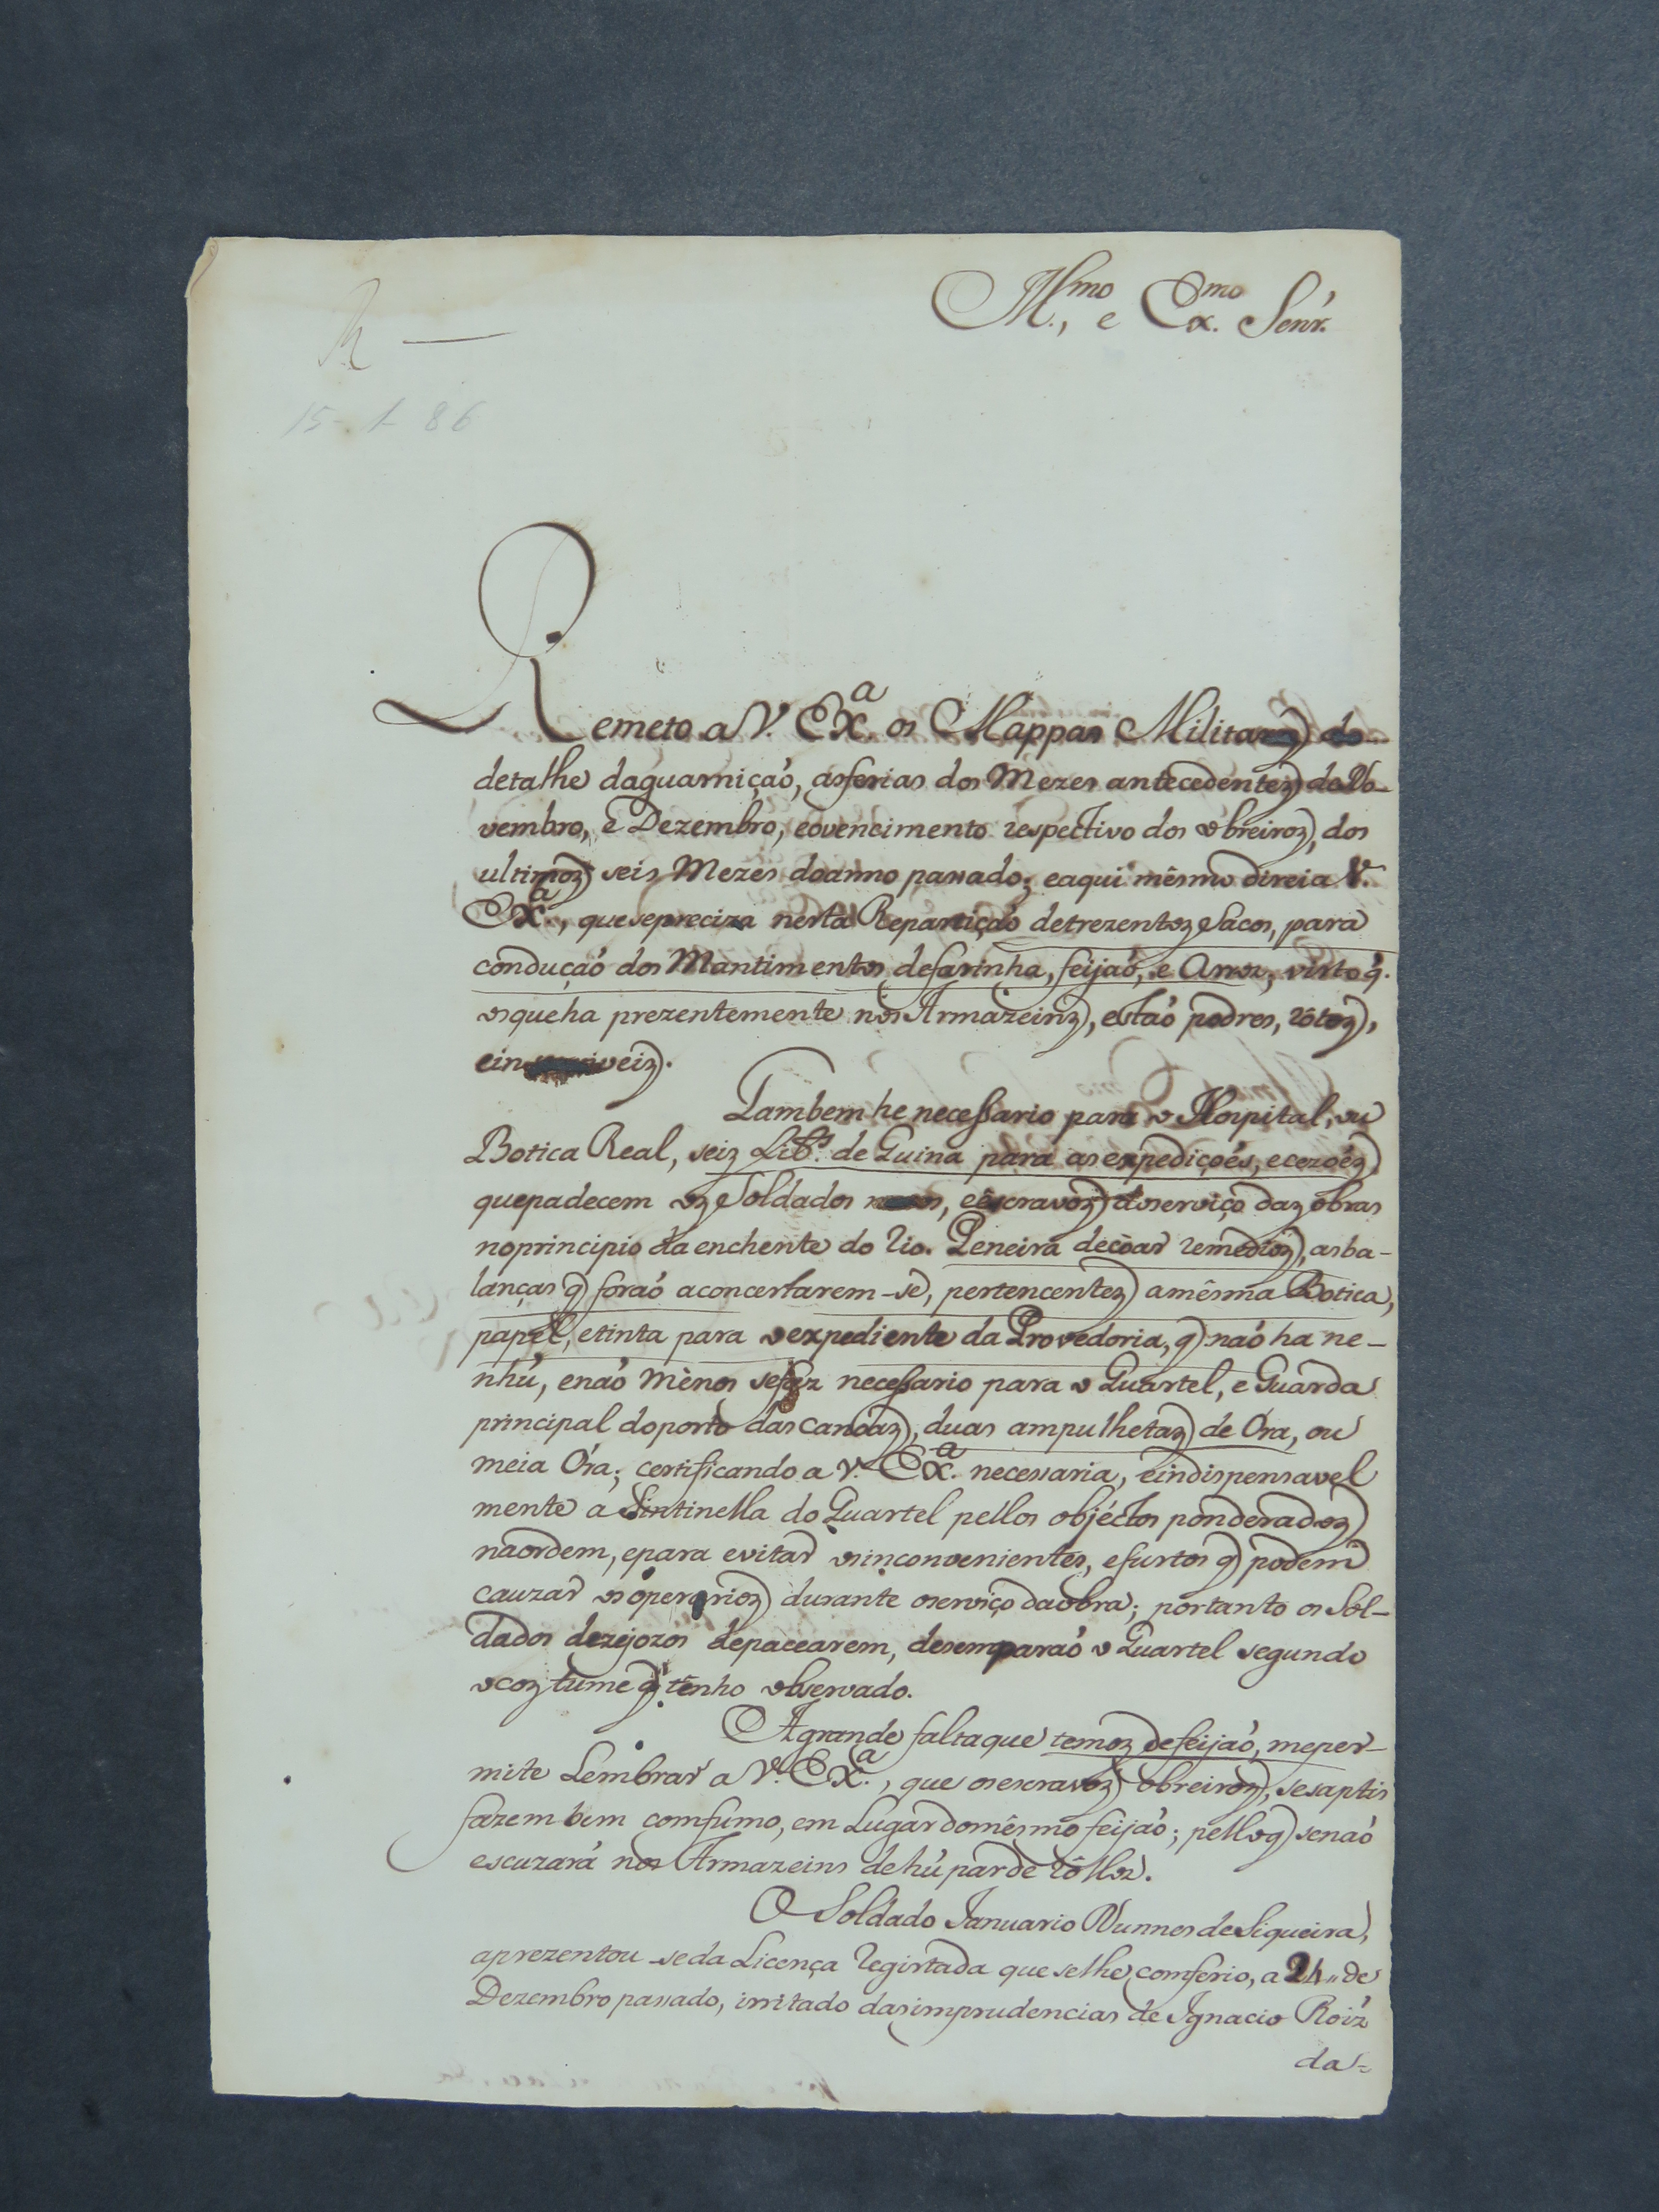 Ill.mo, e Ex.mo Senr.
R —
15-1-86
Remeto a V. Ex.a os Mappas Militares do
detalhe daguarnição, asferias dos Mezes antecedentes de No-
vembro, e Dezembro, eovencimento respectivo dos obreiros, dos
ultimos seis Mezes doanno passado; eaqui mêsmo direia V.
Ex.a, quesepreciza nesta Repartição detrezentos Sacos, para
condução dos Mantimentos defarinha, feijaó, e Arroz, visto q.
osqueha prezentemente nos Armazeins, estaó podres, rôtos,
Tambem he necessario para o Hospital, ou
Botica Real, seis Lib.s de Quina para as expedições, ecezoés
quepadecem os Soldados, eêscravos doserviço das obras
noprincipio da enchente do Rio. Peneira decôar remedios, asba-
lanças q foraó aconcertarem-se, pertencentes amêsma Botica,
papel, etinta para oexpediente da Provedoria, q naó ha ne-
nhũ, enaó mênos sefaz necessario para o Quartel, e Guarda
principal doporto das canoas, duas ampulhetas de Óra, ou
meia Óra; certificando a V. Ex.a necessaria, eindispensavel
mente a Sintinella do Quartel pellos objéctos ponderados
naordem, epara evitar osinconvenientes, efurtos q podem
cauzar os operarios durante oserviço daobra; portanto os Sol-
dados dezejozos depacearem, desemparaó o Quartel segundo
ocostume q tênho observado.
A grande faltaque temos defeijaó, meper-
mite Lembrar a V. Ex.a, que osescravos obreiros, sesaptis
fazem bem comfumo, em Lugar domêsmo feijaó; pelloq senaó
escuzará nos Armazeins dehũ parde rôllos.
O Soldado Januario Nunnes deSiqueira,
aprezentou-se da Licença Registada que selhe comferio, a 24 " de
Dezembro passado, irritado dasimprudencias de Ignacio Roiz
da-